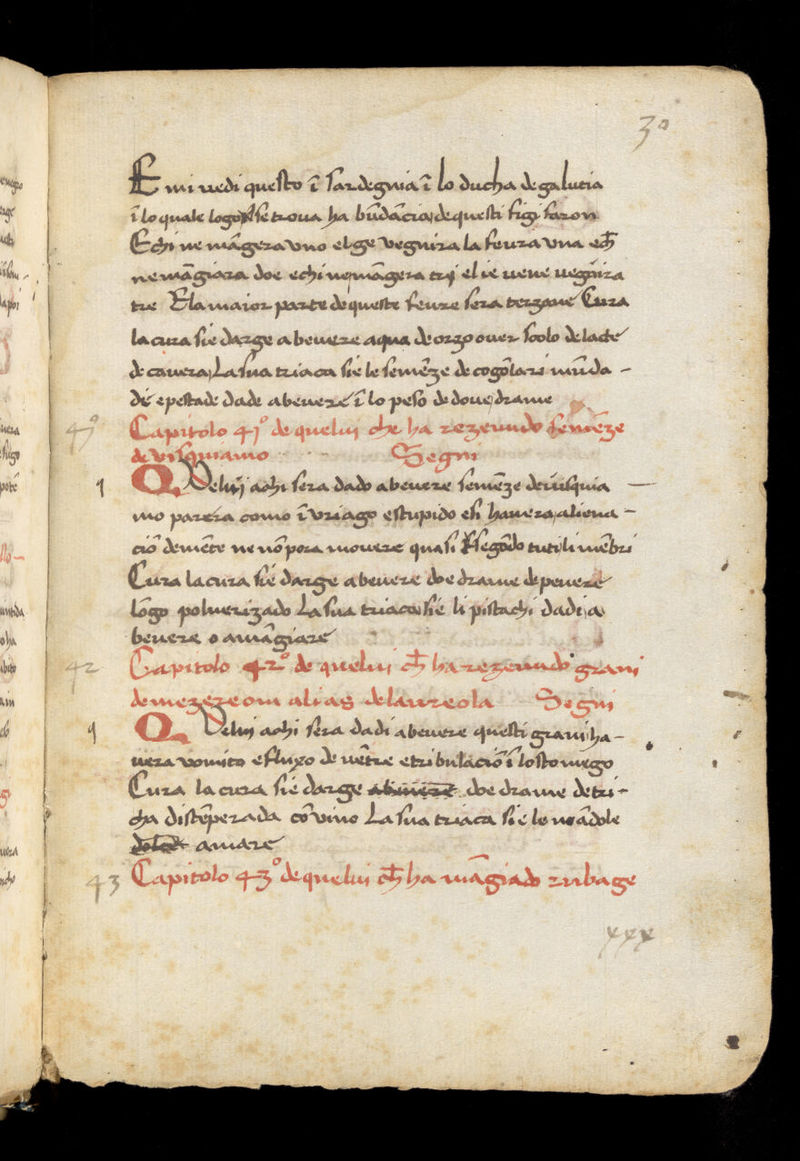 30
E mi uedi questo ī sardegnia ī lo ducha de galutia
ī lo quale logo se troua ha būdācia de questi figi faron
E chi ne māgera uno el ge uegnira la feura una e ch̄
ne māgiara doe e chi ne māgera trij el ie uene uegnira
tre E la maior parte de queste feure sera terzane Cura
la cura sie darge a beuere aqua de orzo ouer scolo de lacte
de caura La sua triaca sie le semēze de cogōlari mūda -
de e pestade dade a beuere ī lo peso de doue drame
41°
Capitolo 41° de quelui che ha rezeuudo semēze
de uisquiamo Segni
1
QVelui a chi sera dado a beuere semēze de iusquia -
mo parera como īuriago e stupido e si hauera aliena -
ciō de mēte ne nō pora mouere quasi segōdo tuti li mēbri
Cura la cura sie darge a beuere doe drame de peuere
lōgo poluerizado La sua triaca sie li pistachi dadi a
beuere o a māgiare
42
Capitolo 42° de quelui ch̄ ha rezeuudo grani
de mezereom alias de laureola Segni
1
QVelui a chi sera dadi a beuere questi grani ha -
uera uomito e fluxo de uētre e tribulaciō ī lo stomego
Cura la cura sie darge a beuere doe drame de tri -
cha distēperada cō uino La sua triaca sie le mādole
amare
43
Capitolo 43° de quelui ch̄ ha māgiado rubage
xxx